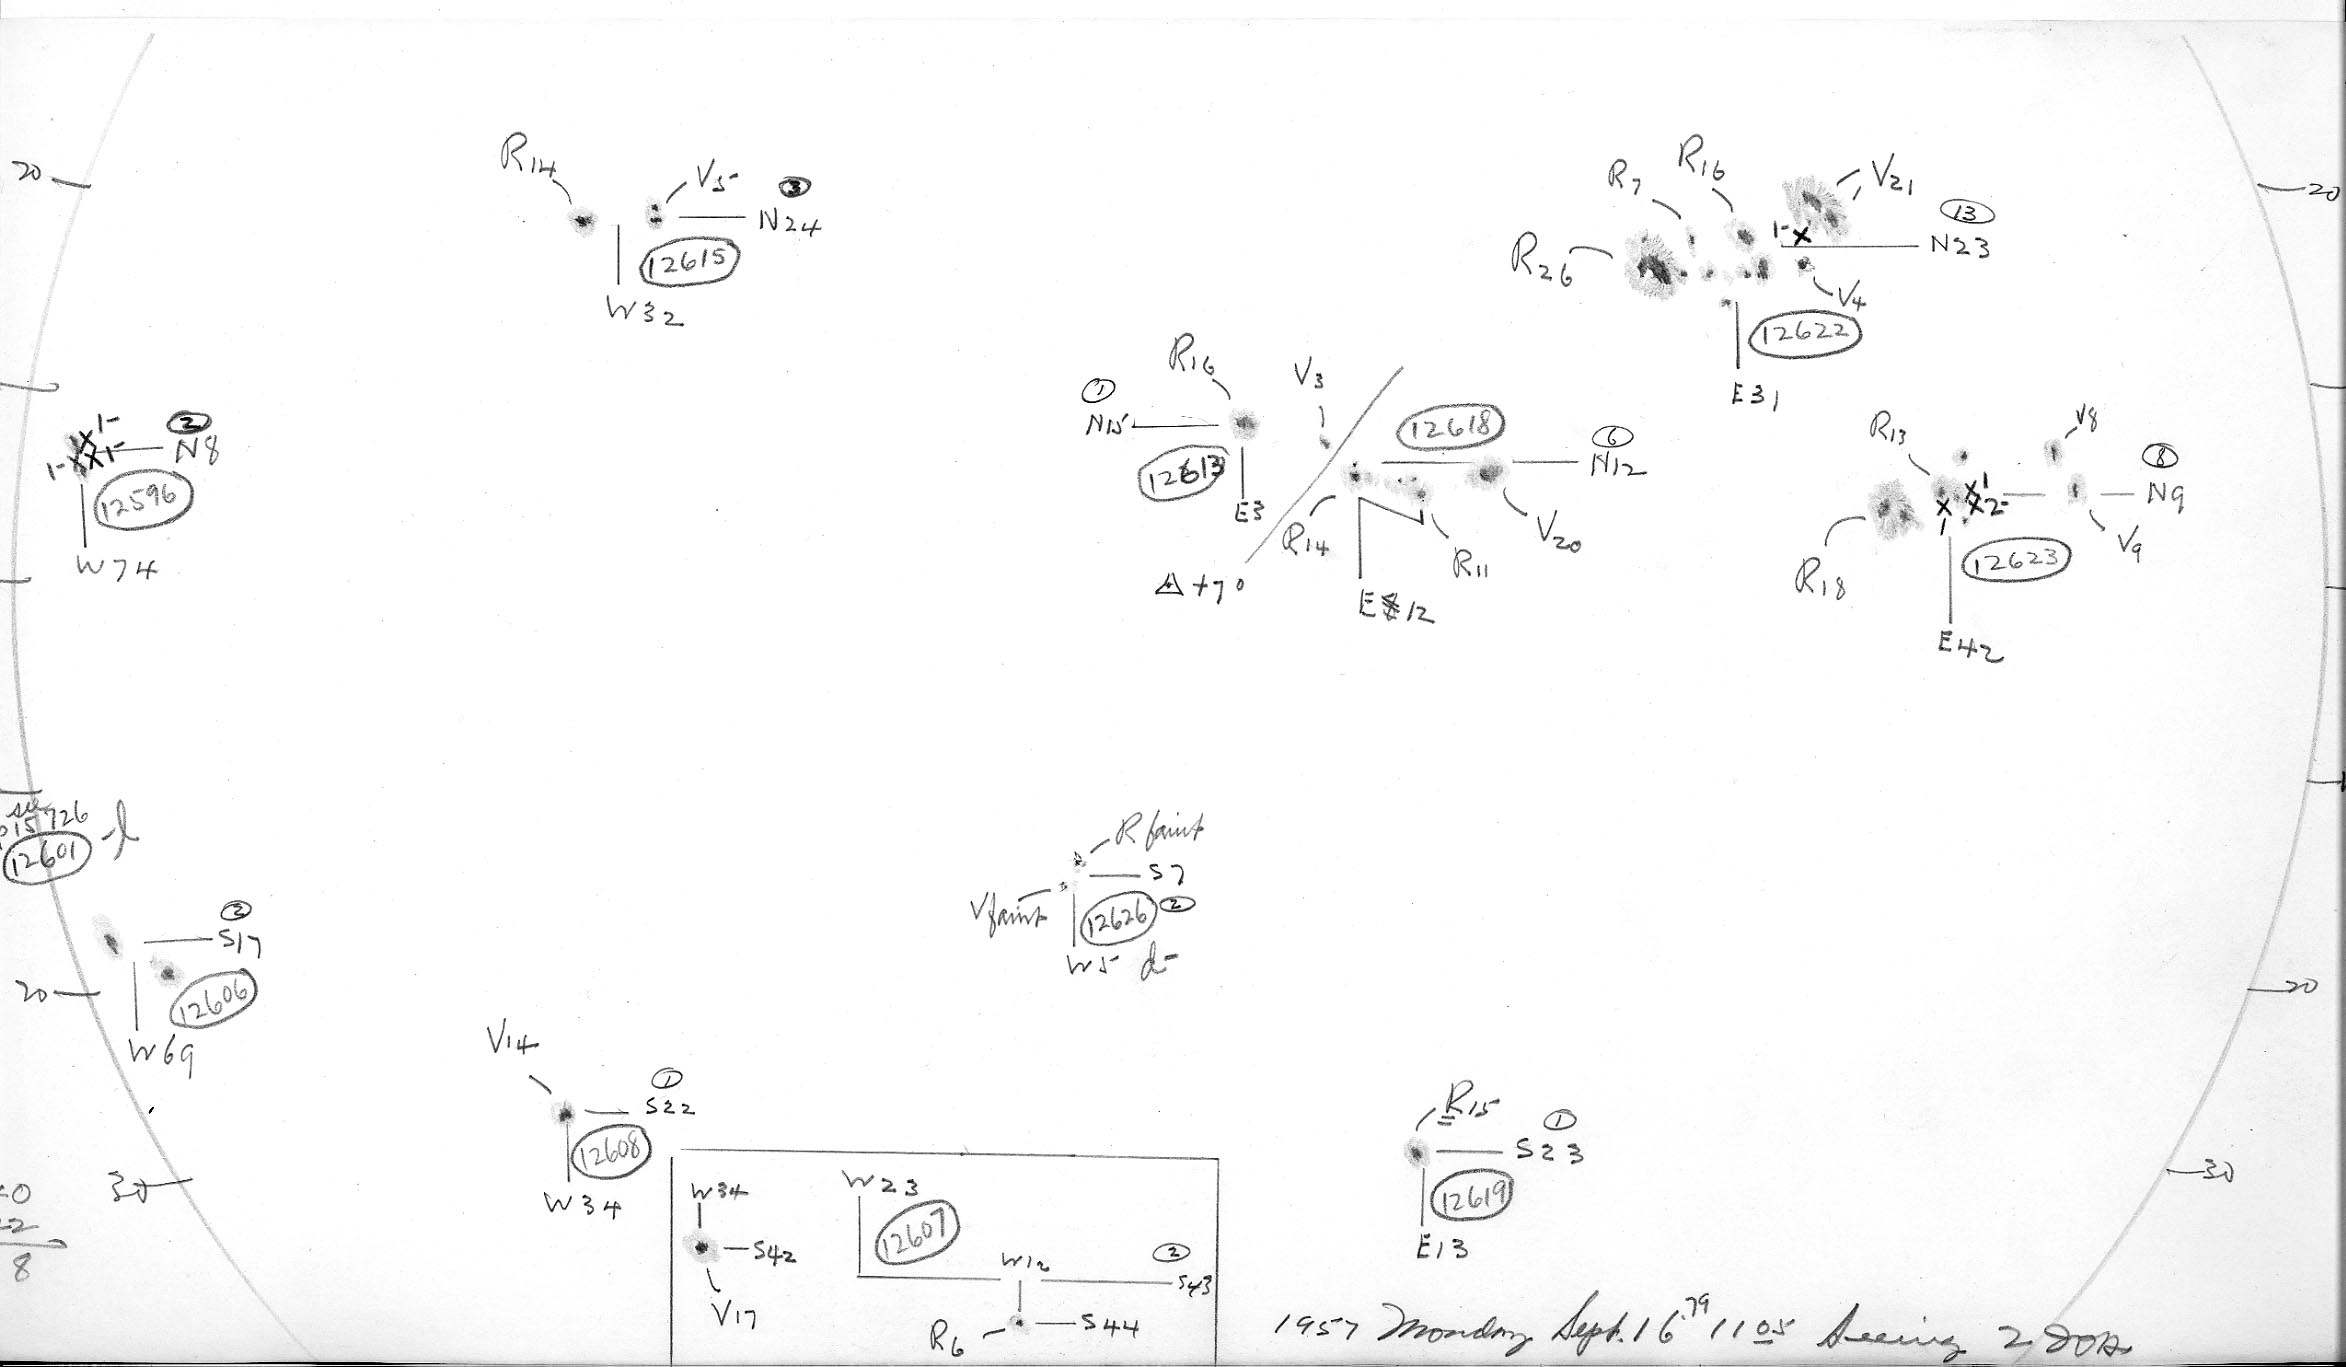 20
R14
V5
3
N24
12615
W32
R7
R16
V21
13
1-
N23
R26
V4
12622
E31
20
1-
2
N8
1-
1-
12596
W74
1
N15
R16
12613
E3
V3
12618
6
N12
R14
R11
V20
E 12
+7°
R13
V8
8
1
2-
N9
1
R18
V9
12623
E42
15726
12601
R faint
S7
V faint
12626
2
W5 d-
2
S17
12606
20
W69
20
V14
1
S22
12608
W34
30
8
W34
S42
V17
W23
12607
W12
2
S43
R6
S44
R15
1
S23
12619
E13
30
1957 Monday Sept. 16.79 1105 Seeing 2